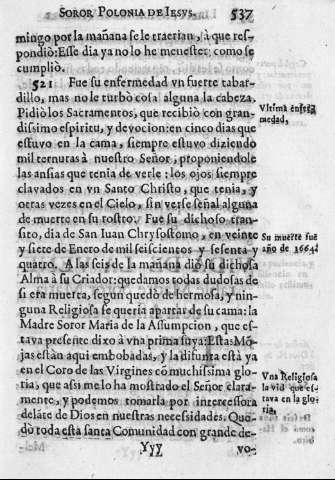 SOROR POLONIA DE IESVS. 537
mingo por la mañana se le traerian, à que res-
pondiò: Esse dia ya no lo he menester; como se
cumpliò.
521 Fue su enfermedad vn fuerte tabar-
dillo, mas no le turbò cosa alguna la cabeza.
Pidiò los Sacramentos, que recibiò con gran-
dissimo espiritu, y devocion: en cinco dias que
estuvo en la cama, siempre estuvo diziendo
mil ternuras à nuestro Señor, proponiendole
las ansias que tenia de verle: los ojos siempre
clavados en vn Santo Christo, que tenia, y
otras vezes en el Cielo, sin verse señal alguna
de muerte en su rostro. Fue su dichoso tran-
sito, dia de San Iuan Chrysostomo, en veinte
y siete de Enero de mil seiscientos y sesenta y
quatro. A las seis de la mañana diò su dichosa
Alma à su Criador: quedamos todas dudosas de
si era muerta, segun quedò de hermosa, y nin-
guna Religiosa se queria apartar de su cama: la
Madre Soror Maria de la Assumpcion, que es-
tava presente dixo à vna prima suya: Esta: Mõ-
jas estàn aqui embobadas, y la difunta està ya
en el Coro de las Virgines cõ muchissima glo-
ria, que assi me lo ha mostrado el Señor clara-
mente, y podemos tomarla por intercessora
delãte de Dios en nuestras necessidades. Que-
dò toda esta santa Comunidad con grande de-
Yyy vo-
Vltima enfer-
medad,
Su muerte fue
año de 1664.
Vna Religiosa
la viò que es-
tava en la glo-
ria,